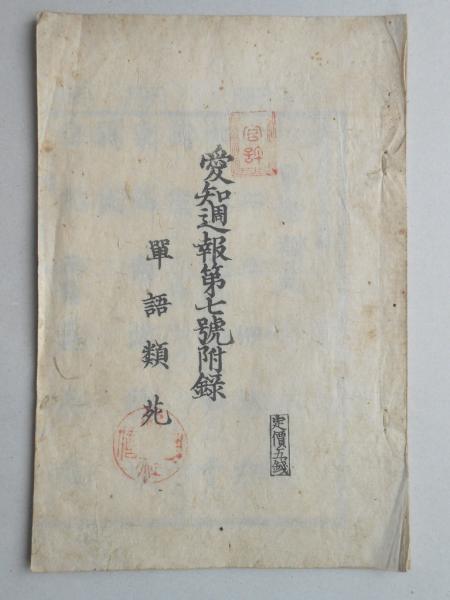 官許
愛知週報第七號附録
單語類苑
定價五錢